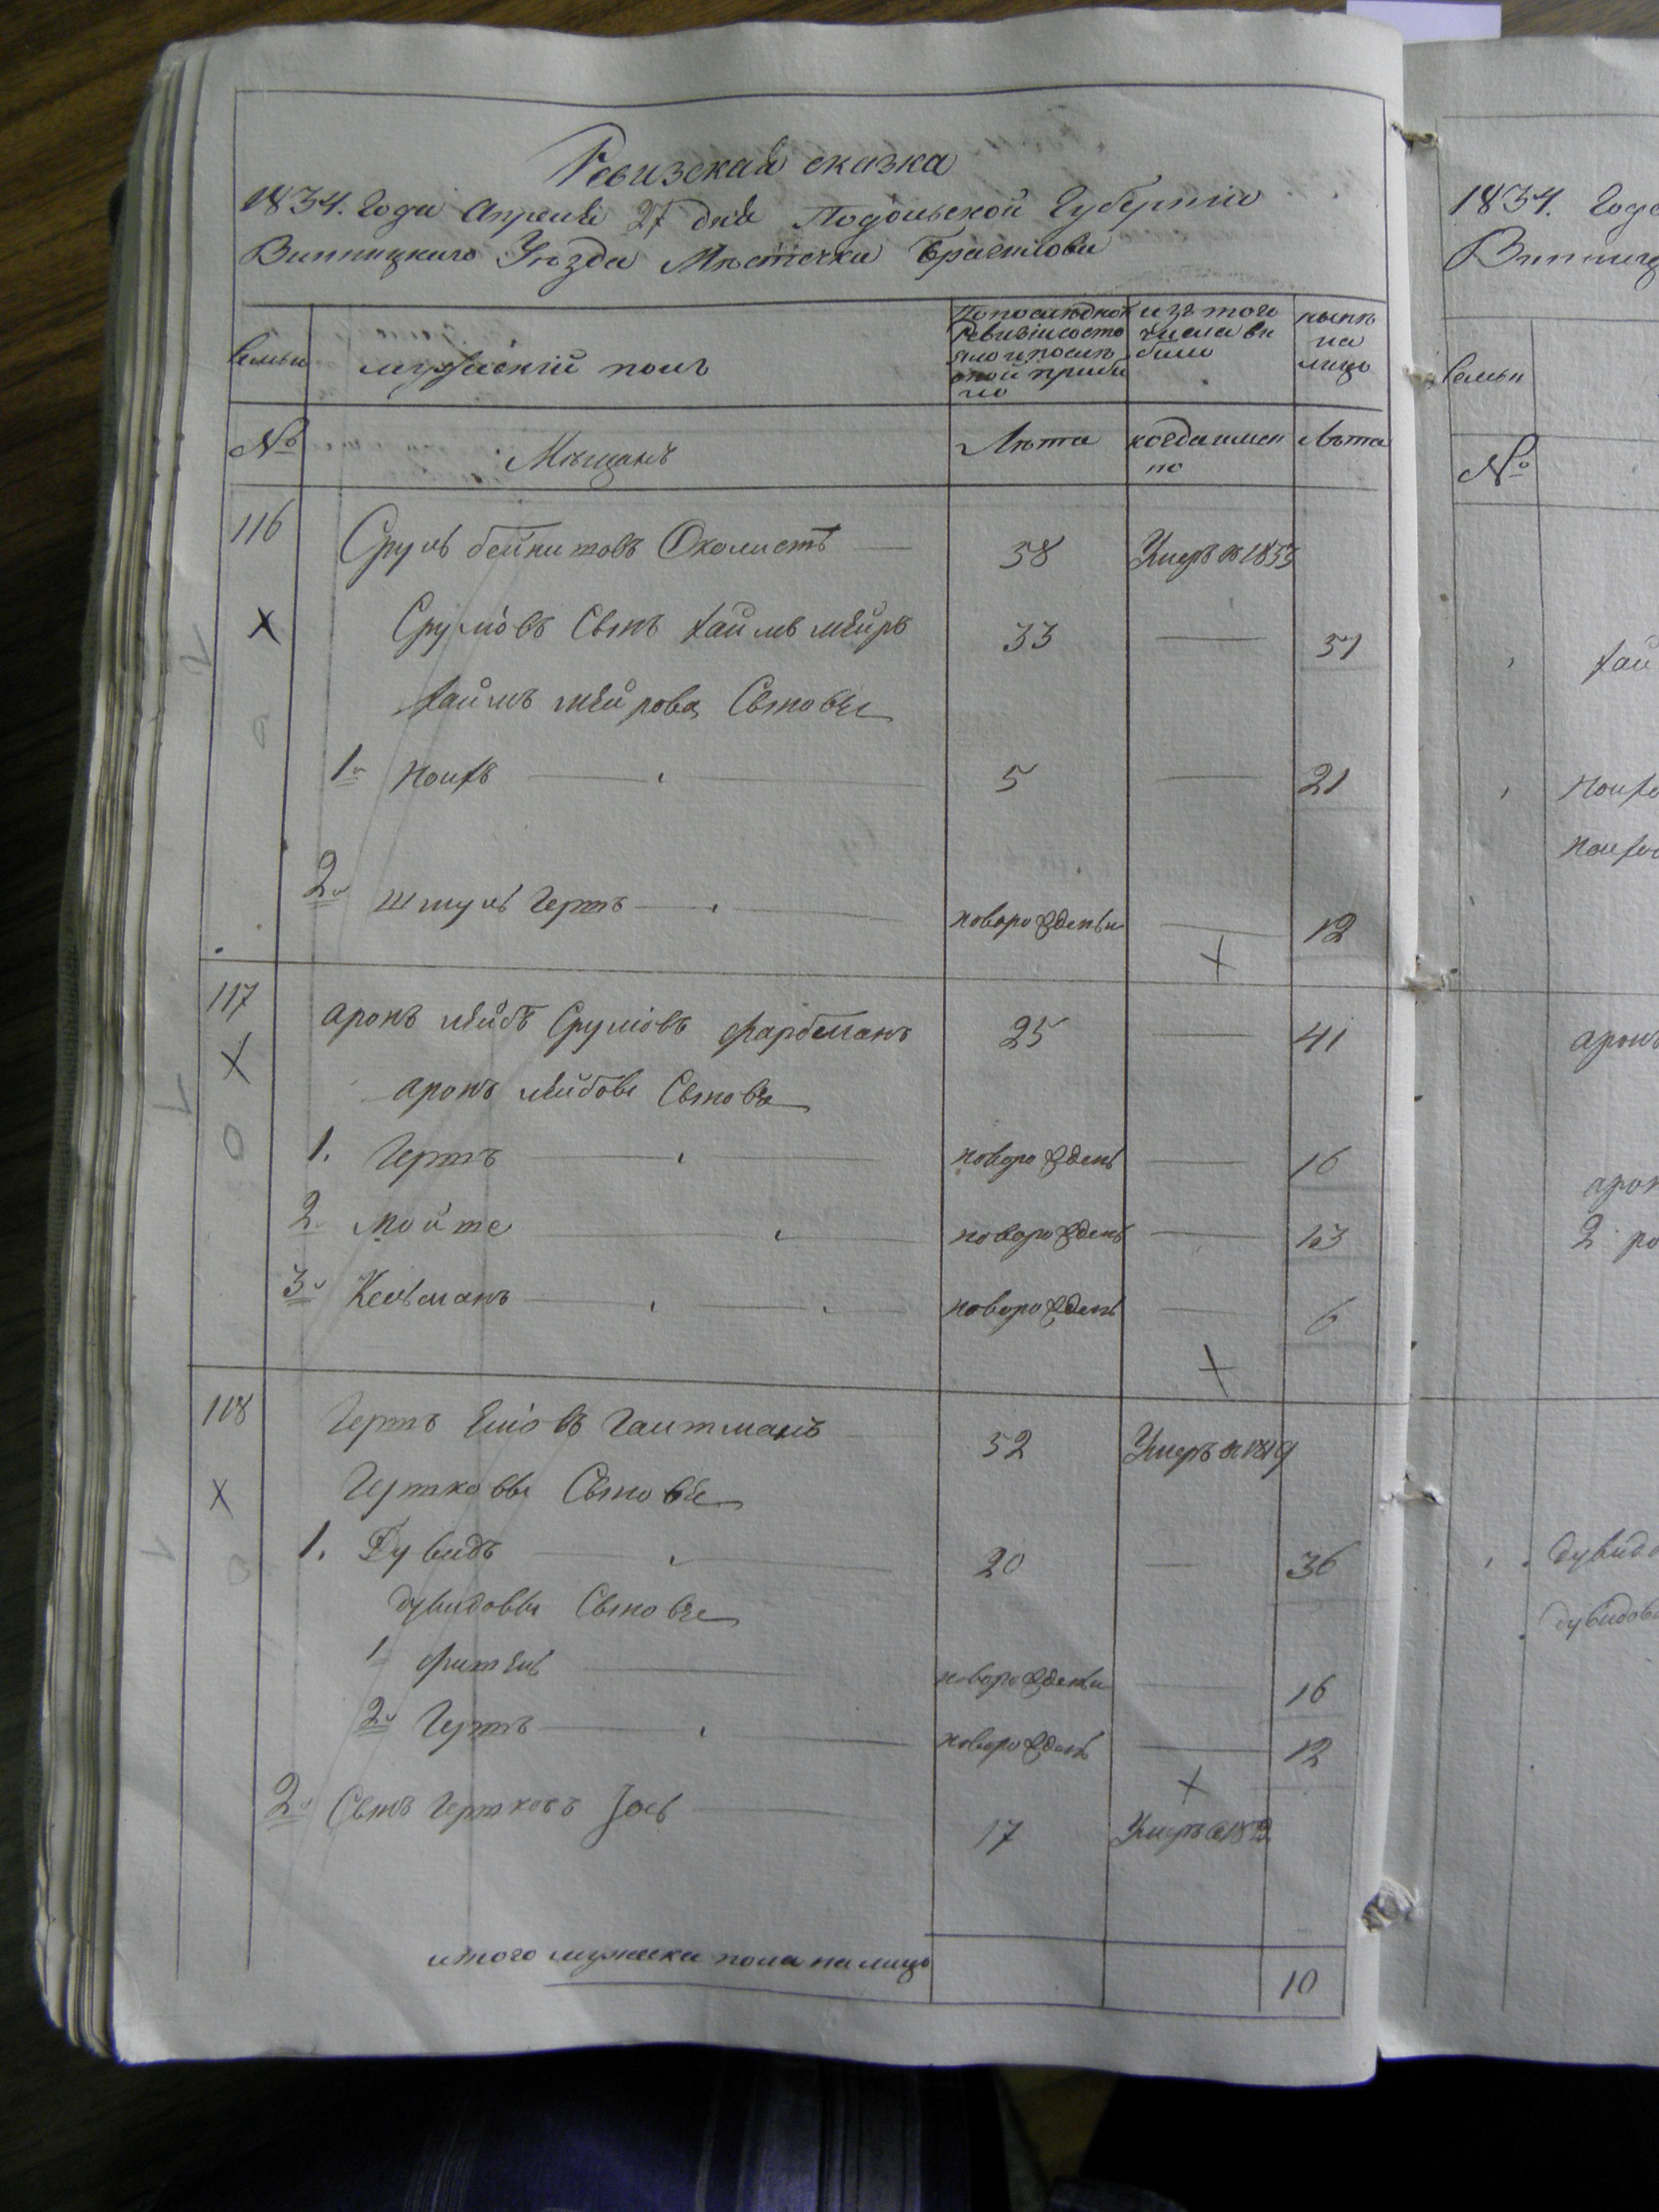 Ревизская сказка
1834. Года Апреля 27 дня Подольской Губернии
Винницкаго Уѣзда Мѣстечка Браилова
Семьи
мужескій полъ
По последной ревизіи состояло и после оной прибыло
изъ того числа выбыло
нынѣ на лицо
№
Мѣщанъ
Лѣта
когда именно
Лѣта
116 Сруль Околистъ 58 Умеръ в 1833
Срулiовъ Сынъ хаимъ мейръ 33 51
хаимъ мейрова Сыновя
1й ноихъ 5 21
2й шмуль Гершъ новорожденны 12
117 аронъ лейбъ Срулiовъ фарбманъ 25 41
аронъ лейбовы Сыновя
1. Гершъ новорожденъ 16
2 мойше новорожденъ 13
3й Кельманъ новорожденъ 6
118 Гершъ 52 Умеръ в 1819
Гершковы Сыновя
1. Дувидъ 20 36
дувидовы Сыновя
1 фишель новорожденны 16
2й Гершъ новорожденъ 12
2й Сынъ Гершковъ Iось 17 Умеръ
итого мужеска пола на лицо 10
1834. Года
Семьи
№
хаи
ноихо
аронъ
арон
2
дувидо
дувидовы